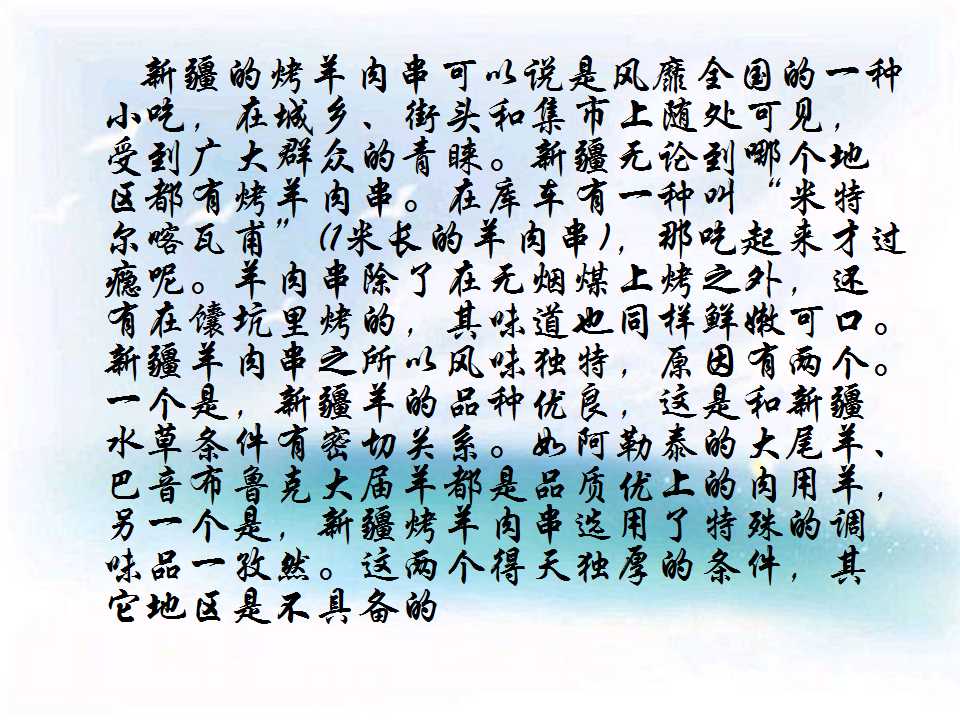 新疆的烤羊肉串可以说是风靡全国的一种
小吃，在城乡、街头和集市上随处可见，
受到广大群众的青睐。新疆无论到哪个地
区都有烤羊肉串。在库车有一种叫“米特
尔喀瓦甫”(1米长的羊肉串)，那吃起来才过
瘾呢。羊肉串除了在无烟煤上烤之外，还
有在馕坑里烤的，其味道也同样鲜嫩可口。
新疆羊肉串之所以风味独特，原因有两个。
一个是，新疆羊的品种优良，这是和新疆
水草条件有密切关系。如阿勒泰的大尾羊、
巴音布鲁克大届羊都是品质优上的肉用羊，
另一个是，新疆烤羊肉串选用了特殊的调
味品一孜然。这两个得天独厚的条件，其
它地区是不具备的